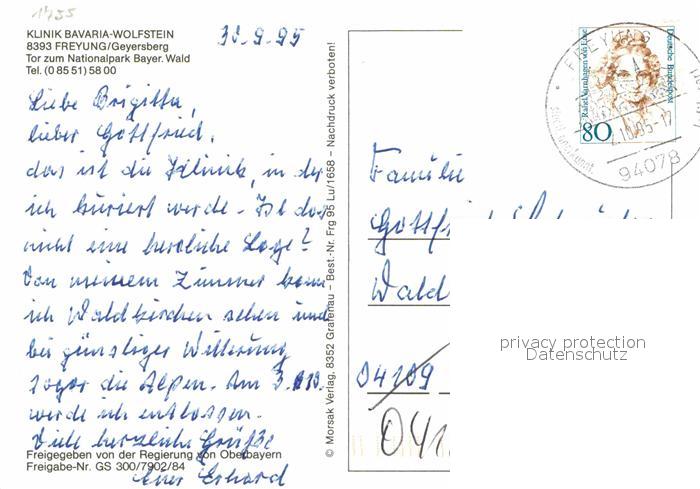 1455
KLINIK BAVARIA-WOLFSTEIN
8393 FREYUNG/Geyersberg
Tor zum Nationalpark Bayer. Wald
Tel. (0 85 51) 58 00
30.9.95
Liebe Brigitta,
lieber Gottfried,
das ist die Klinik, in der
ich kuriert werde. Ist das
nicht eine herrliche Lage?
Von meinem Zimmer kann
ich Waldkirchen sehen und
bei günstiger Witterung
sogar die Alpen. Am 3.10.
werde ich entlassen.
Viele herzliche Grüße
Euer Erhard
Freigegeben von der Regierung von Oberbayern
Freigabe-Nr. GS 300/7902/84
© Morsak Verlag, 8352 Grafenau – Best.-Nr. Frg 95 Lu/1658 - Nachdruck verboten!
Rahel Varnhagen von Ense
Deutsche Bundespost
80
FREYUNG
10.95-17
94078
Familie
Gottfr
Wald
04109
041
privacy protection
Datenschutz